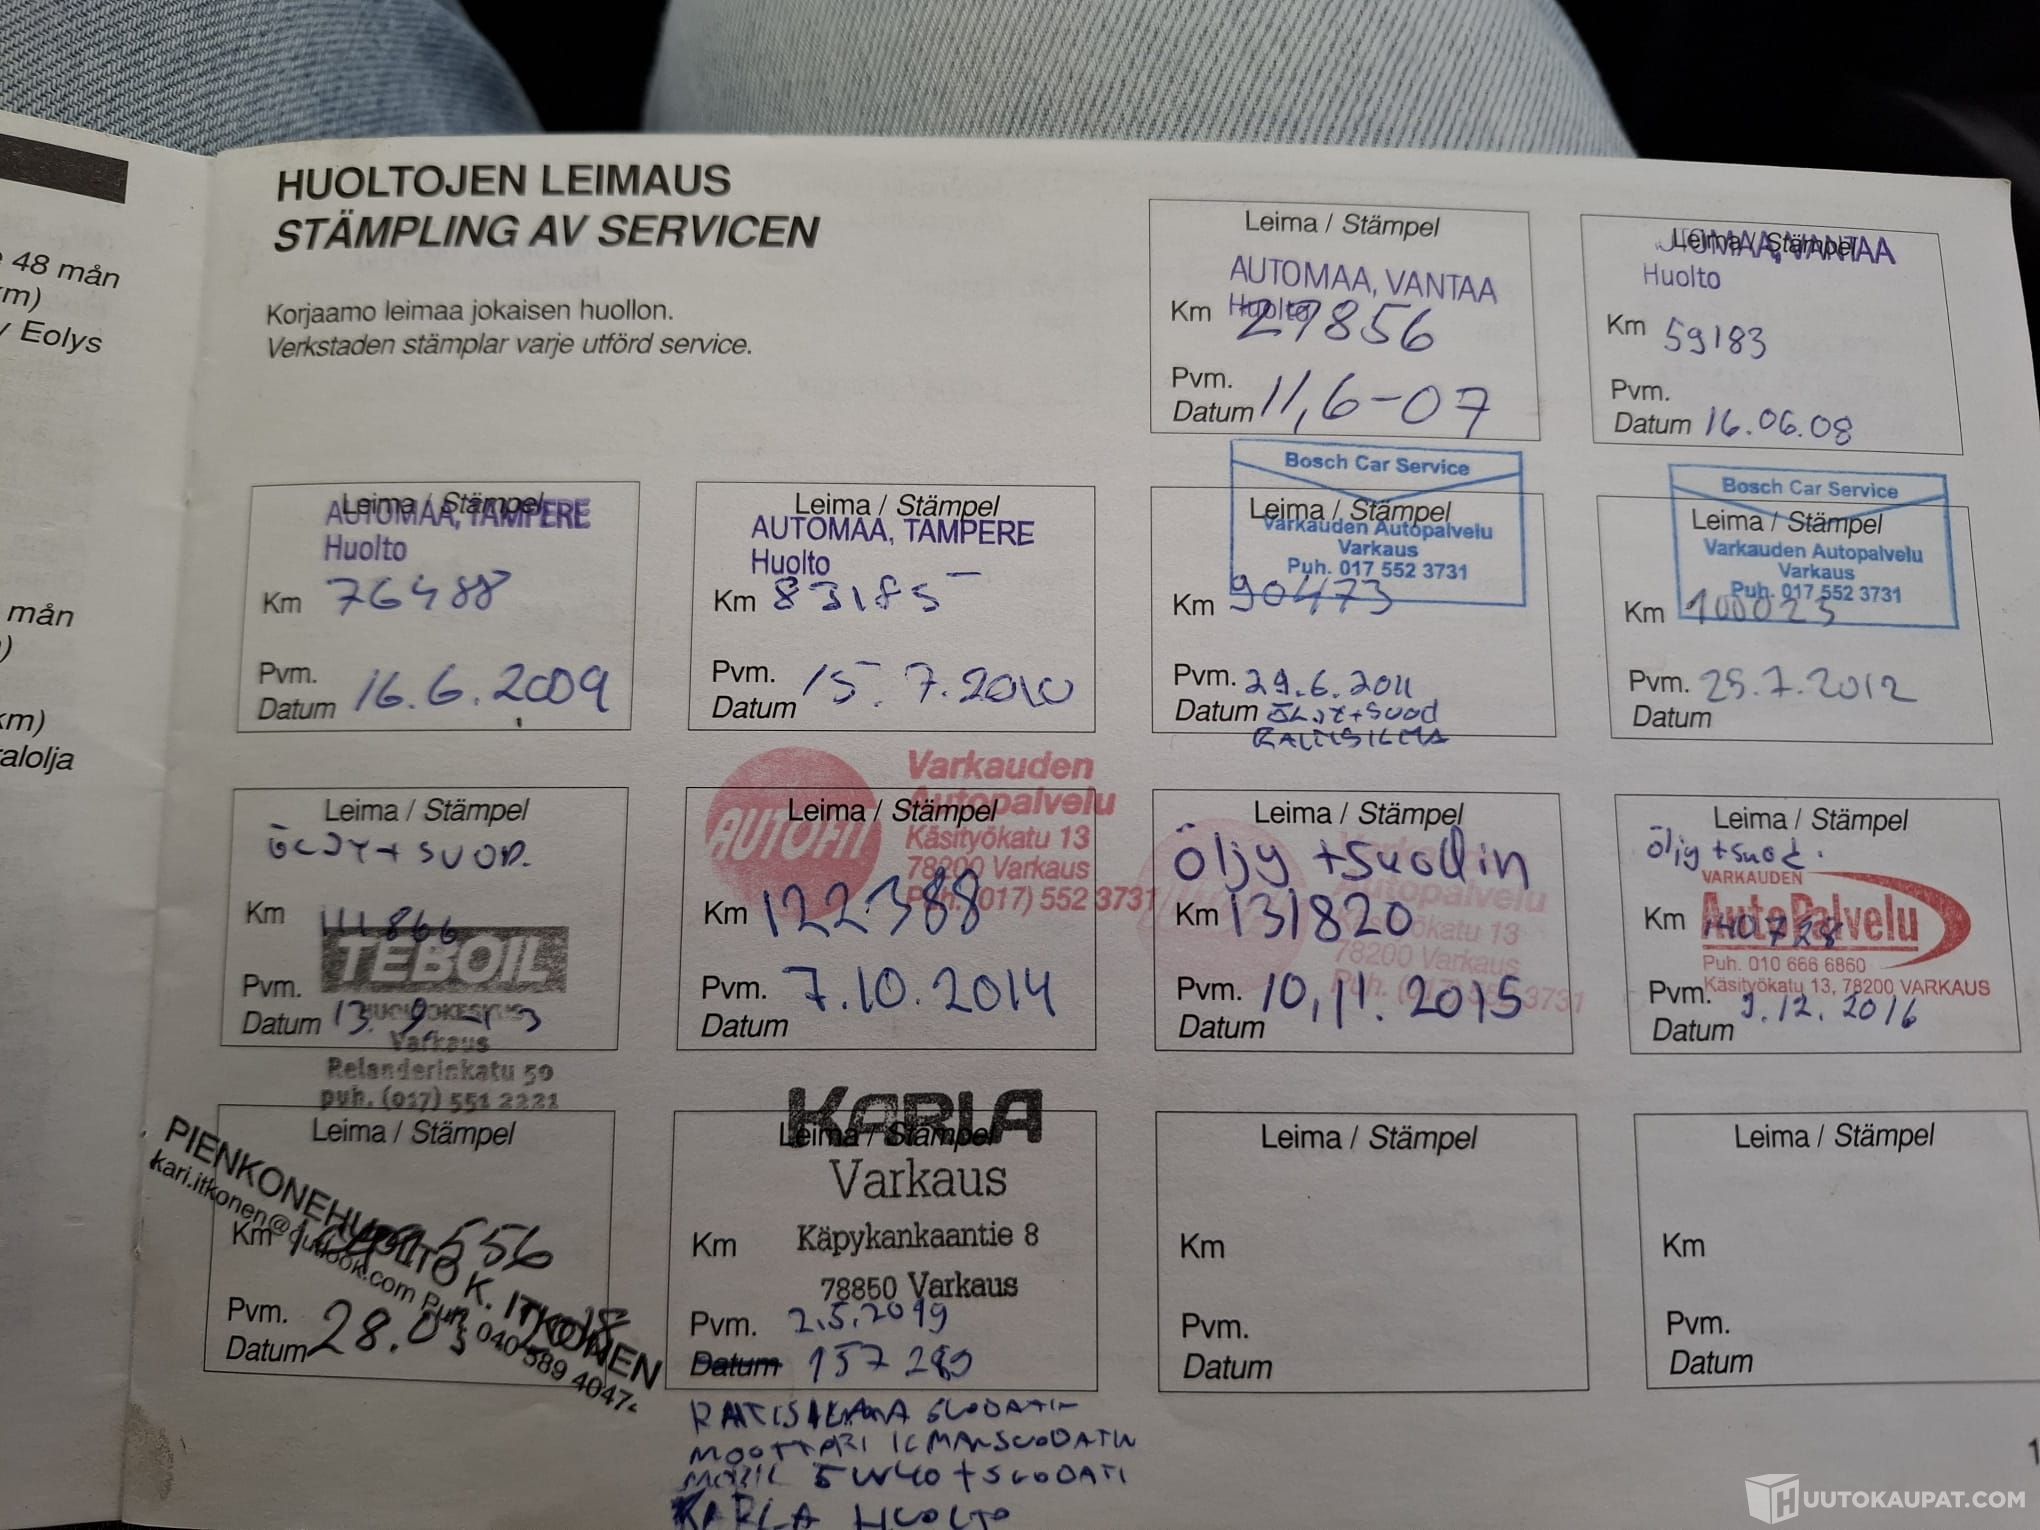 48 mån
km)
Eolys
mån
)
km)
alolja
HUOLTOJEN LEIMAUS
STÄMPLING AV SERVICEN
Korjaamo leimaa jokaisen huollon.
Verkstaden stämplar varje utförd service.
Leima / Stämpel
AUTOMAA, VANTAA
Huolto
Km 27856
Pvm.
Datum 11,6-07
Leima / Stämpel
AUTOMAA, VANTAA
Huolto
Km 59183
Pvm.
Datum 16.06.08
Leima / Stämpel
AUTOMAA, TAMPERE
Huolto
Km 76488
Pvm.
Datum 16.6.2009
Leima / Stämpel
AUTOMAA, TAMPERE
Huolto
Km 83185
Pvm.
Datum 15.7.2010
Bosch Car Service
Leima / Stämpel
Varkauden Autopalvelu
Varkaus
Puh. 017 552 3731
Km 90473
Pvm. 29.6.2011
Datum ÖLJY+SUOD
Bosch Car Service
Leima / Stämpel
Varkauden Autopalvelu
Varkaus
Puh. 017 552 3731
Km 100023
Pvm. 25.7.2012
Datum
Leima / Stämpel
ÖLJY+SUOD.
Km 111866
TEBOIL
HUOLTOKESKUS
Pvm.
Datum 13.9-13
Varkaus
Relanderinkatu 50
puh. (017) 551 2221
Varkauden
Autopalvelu
Leima / Stämpel
AUTOFIT
Käsityökatu 13
78200 Varkaus
Puh. (017) 552 3731
Km 122388
Pvm. 7.10.2014
Datum
Leima / Stämpel
Varkauden
Autopalvelu
Öljy +suodin
Km 131820
Käsityökatu 13
78200 Varkaus
Pvm. 10.11.2015
Datum
Leima / Stämpel
Öljy +suod.
VARKAUDEN
AutoPalvelu
Km 140728
Puh. 010 666 6860
Käsityökatu 13, 78200 VARKAUS
Pvm. 9.12.2016
Datum
Leima / Stämpel
PIENKONEHUOLTO K. ITKONEN
kari.itkonen@outlook.com Puh. 040 589 4047
Km 556
Pvm.
Datum 28.03 2018
KARLA
Leima / Stämpel
Varkaus
Käpykankaantie 8
78850 Varkaus
Km
Pvm. 2.5.2019
Datum 157 289
RAITISILMA SUODATIN
MOOTTORI ILMANSUODATIN
MOBIL 5W40 + SUODATI
KARLA HUOLTO
Leima / Stämpel
Km
Pvm.
Datum
Leima / Stämpel
Km
Pvm.
Datum
1
HUUTOKAUPAT.COM